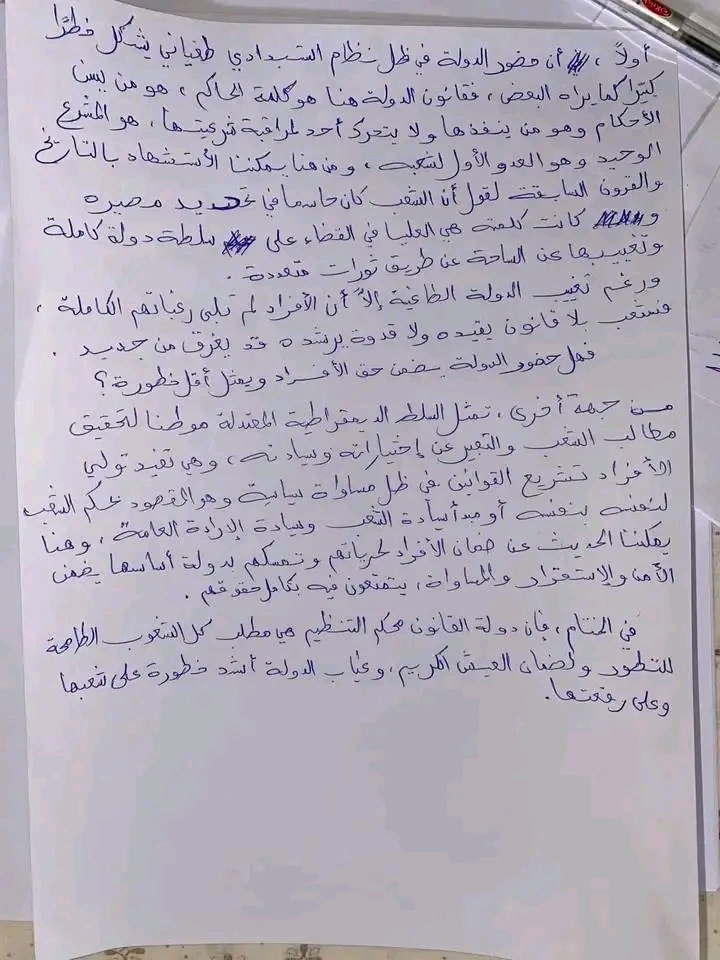 أولاً ، أن حضور الدولة في ظل نظام استبدادي طغياني يشكل خطرًا
كبيرًا كما يراه البعض ، فقانون الدولة هنا هو كلمة الحاكم ، هو من يسن
الأحكام وهو من ينفذها ولا يتحرك أحد لمراقبة شرعيتها ، هو المشرع
الوحيد وهو العدو الأول لشعبه ، ومن هنا يمكننا الأستشهاد بالتاريخ
والقرون السابقة لقول أن الشعب كان حاسما في تحديد مصيره
و كانت كلمته هي العليا في القضاء على سلطة دولة كاملة
وتغييبها عن الساحة عن طريق ثورات متعددة .
ورغم تغييب الدولة الطاغية إلاّ أن الأفراد لم تلبى رغباتهم الكاملة ،
فشعب بلا قانون يقيده ولا قدوة يرشده قد يغرق من جديد .
فهل حضور الدولة يضمن حق الأفراد ويمثل أقل خطورة ؟
من جهة أخرى ، تمثل السلط الديمقراطية المعتدلة موطنا لتحقيق
مطالب الشعب والتعبير عن إختياراته وسيادته ، وهي تفيد تولي
الأفراد تشريع القوانين في ظل مساواة سياسية وهو المقصود بحكم الشعب
لنفسه بنفسه أو مبدأ سيادة الشعب وسيادة الإرادة العامة ، وهنا
يمكننا الحديث عن ضمان الأفراد لحرياتهم وتمسكهم بدولة أساسها يضمن
الأمن والإستقرار والمساواة ، يتمتعون فيه بكامل حقوقهم .
في الختام ، فإن دولة القانون محكم التنظيم هي مطلب كل الشعوب الطامحة
للتطور ولضمان العيش الكريم ، وغياب الدولة أشد خطورة على شعبها
وعلى رفعتها .